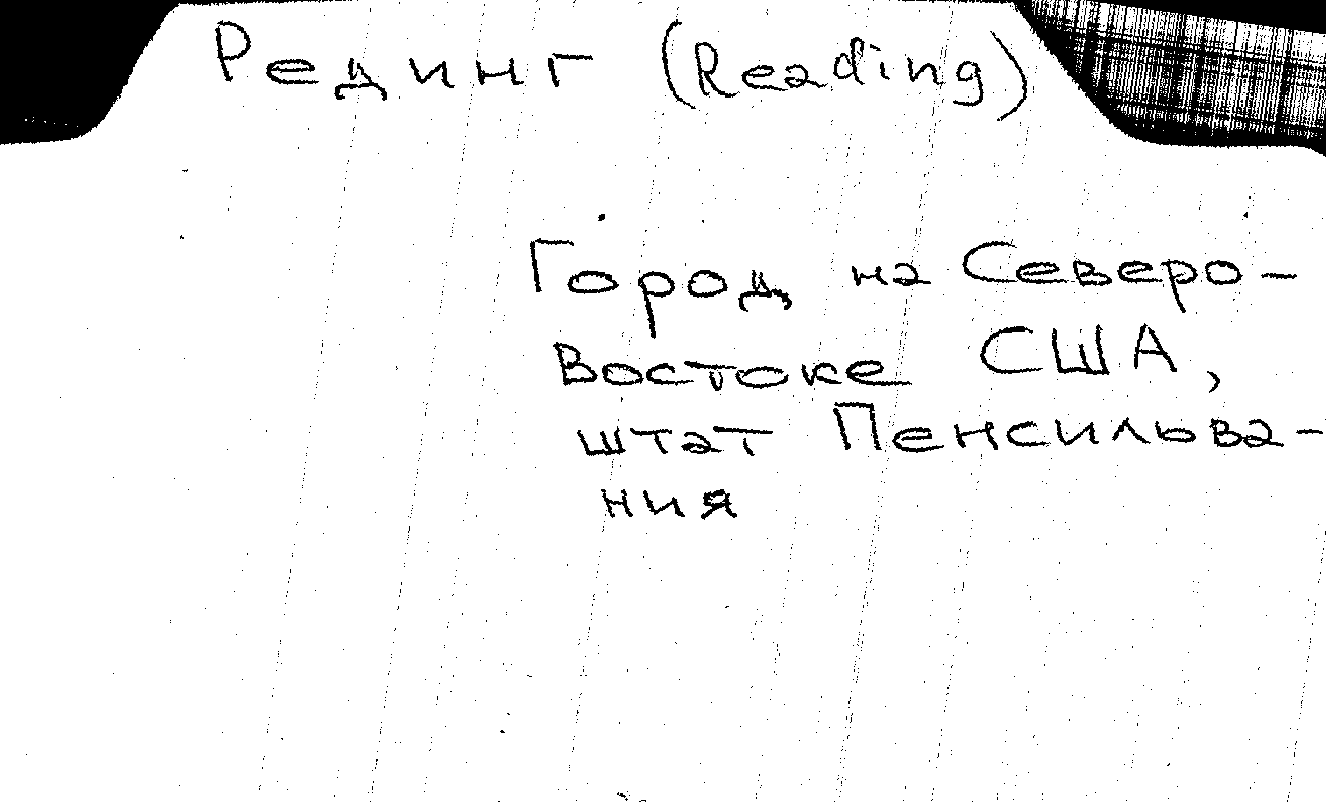 Рединг (Reading)
Город на Северо-
Востоке США,
штат Пенсильва-
ния